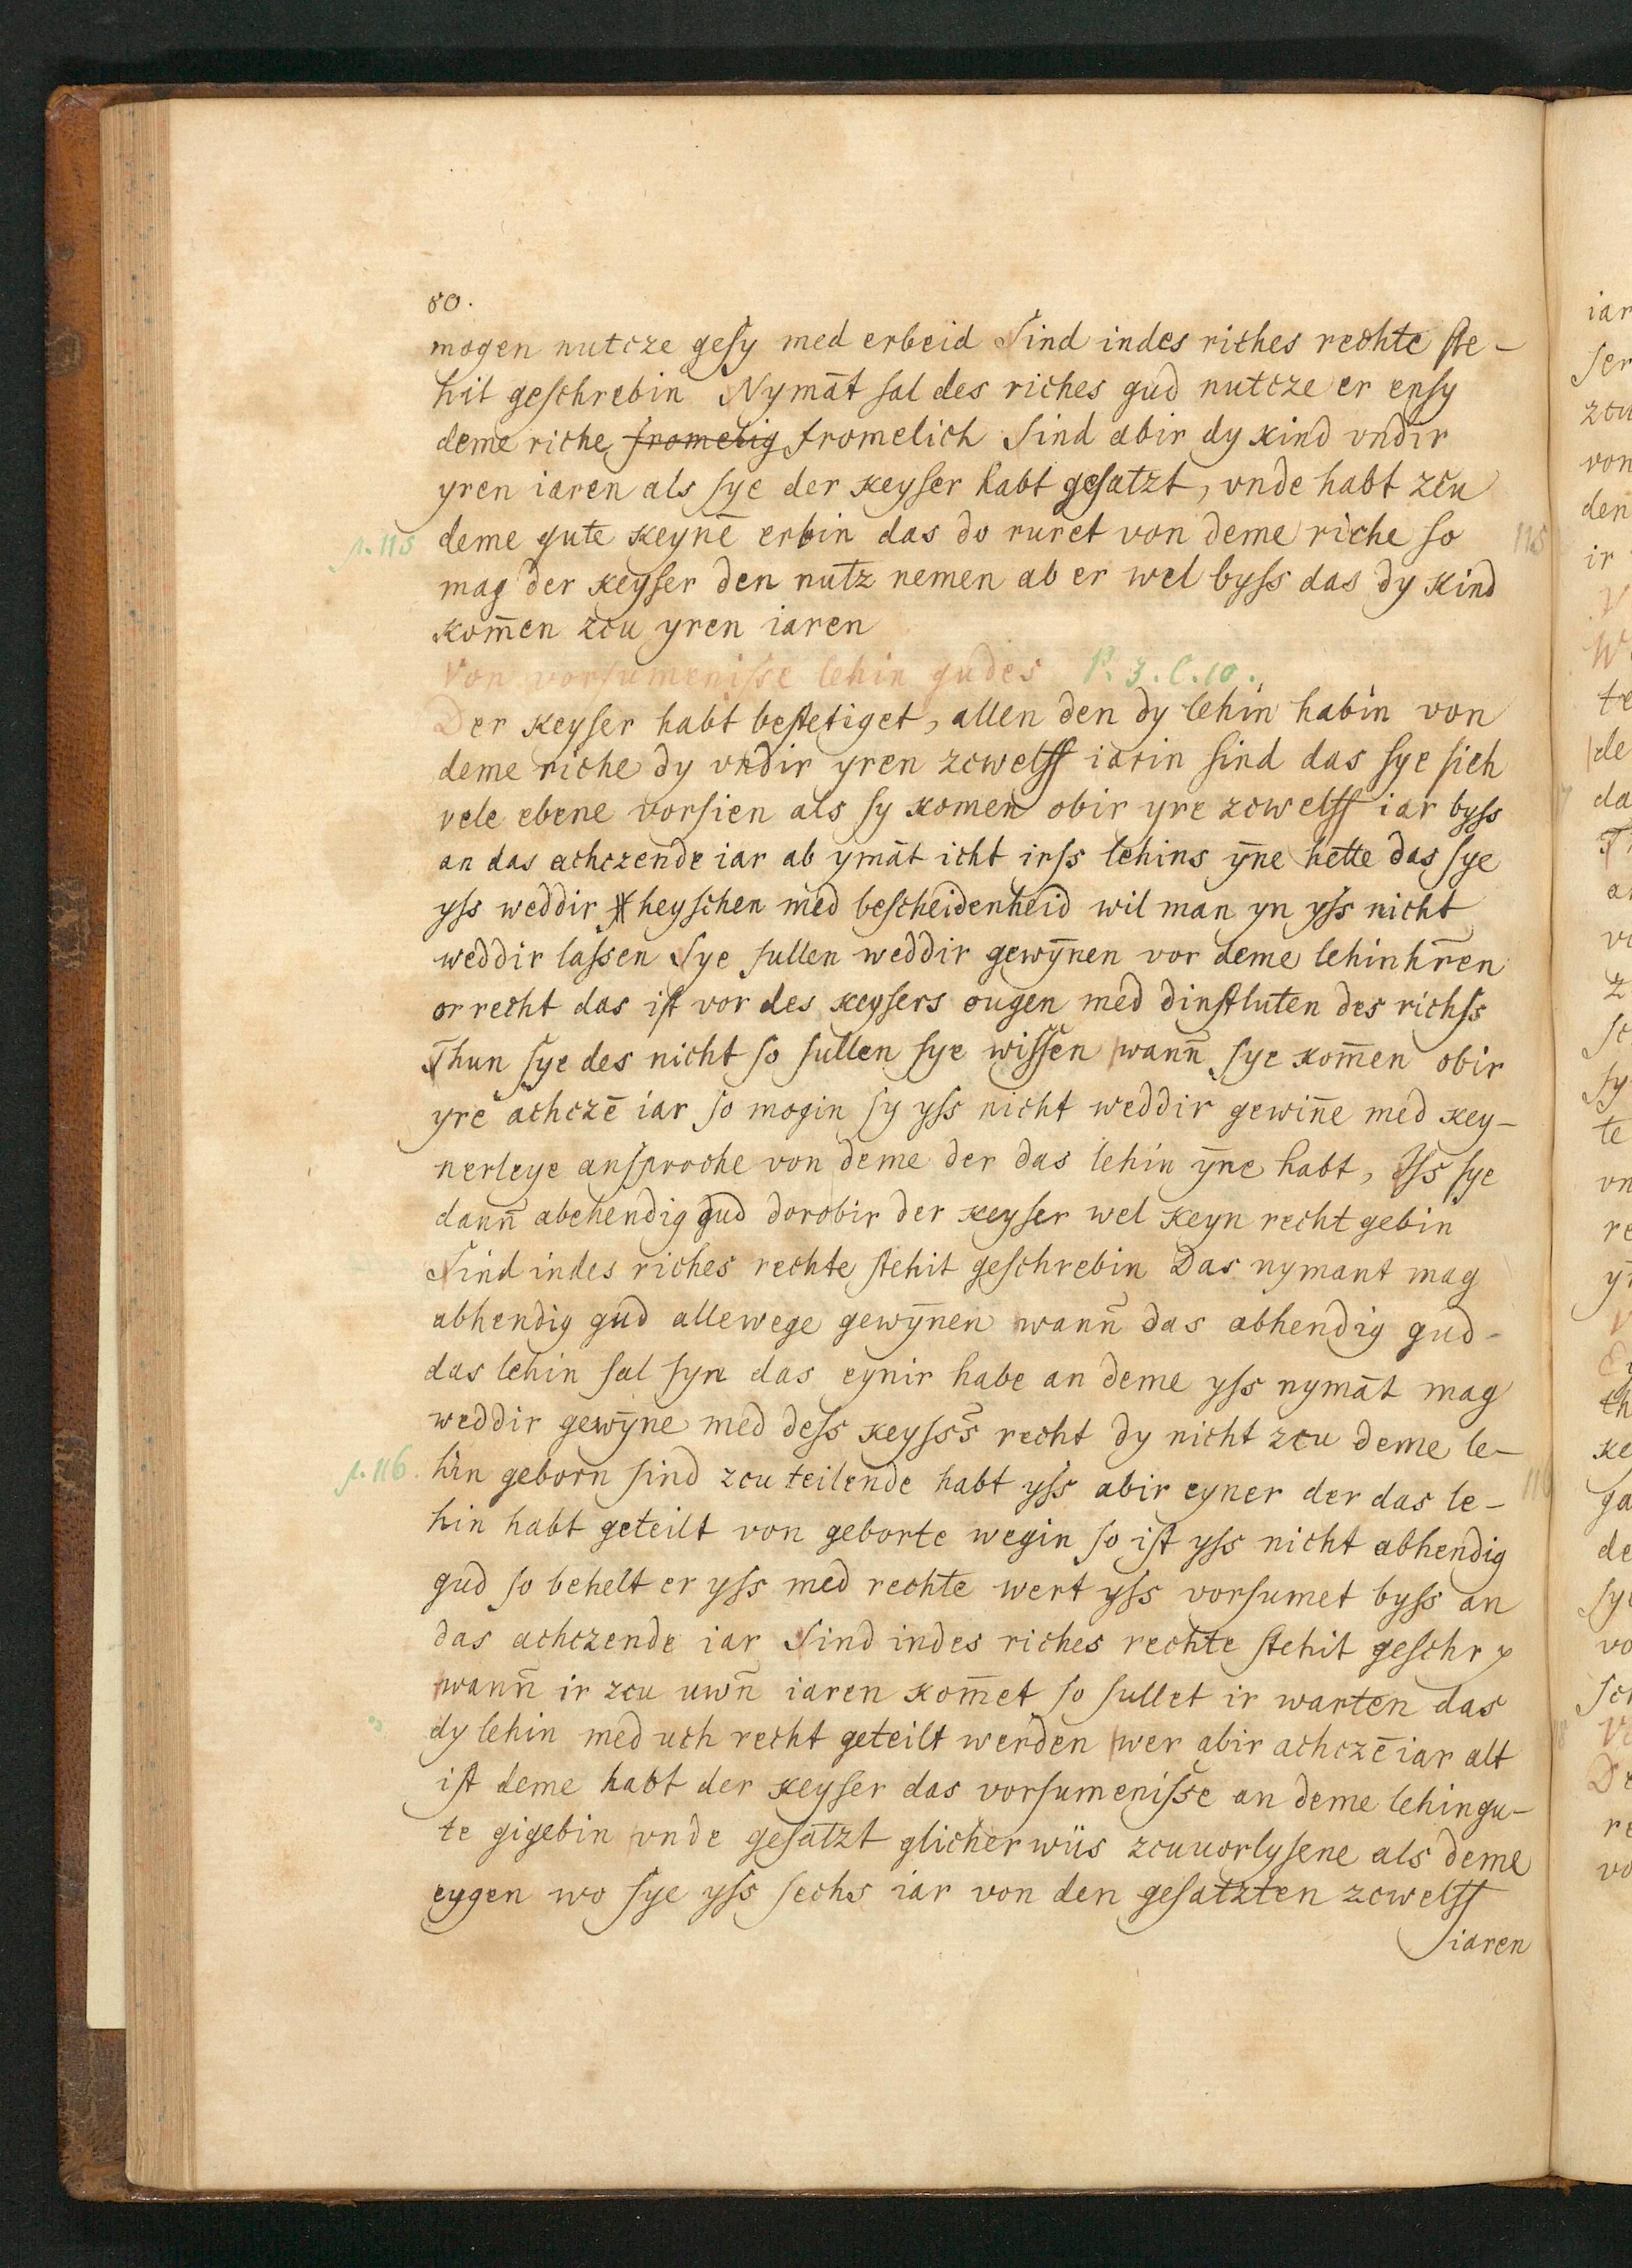 80.
mogen nutcze gesy med erbeid Sind indes riches rechte ste-
hit geschrebin Nymāt sal des riches gud nutcze er ensy
deme riche fromelig fromelich Sind abir dy kind vndir
yren iaren als sye der keyser habt gesatzt, vnde habt zcu
p. 115 deme gute keynē erbin das do ruret von deme riche so
mag der keyser den nutz nemen ab er wel byss das dy kind
kom̄en zcu yren iaren
Von vorsumenisse lehin gudes P. 3. C. 10.
Der keyser habt bestetiget, allen den dy lehin habin von
deme riche dy vndir yren zcwelff iarin sind das sye sich
vele ebene vorsien als sy komen obir yre zcwelff iar byss
an das achczende iar ab ymāt icht irss lehins ȳne hette das sye
yss weddir heyschen med bescheidenheid wil man yn yss nicht
weddir lassen Sye sullen weddir gewȳnen vor deme lehinhr̄en
or recht das ist vor des keysers ougen med dinstluten des richss
Thun sye des nicht so sullen sye wissen wann̄ sye kom̄en obir
yre achczē iar so mogin sy yss nicht weddir gewin̄e med key-
nerleye ansproche von deme der das lehin ȳne habt, Iss sye
dann̄ abehendig gud dorobir der keyser wel keyn recht gebin
Sind indes riches rechte stehit geschrebin Das nymant mag
abhendig gud allewege gewȳnen wann̄ das abhendig gud-
das lehin sal syn das eynir habe an deme yss nymāt mag
weddir gewȳne med dess keyss̄s recht dy nicht zcu deme le-
p. 116. hin geborn sind zcu teilende habt yss abir eyner der das le-
hin habt geteilt von geborte wegin so ist yss nicht abhendig
gud so behelt er yss med rechte wert yss vorsumet byss an
das achczende iar Sind indes riches rechte stehit geschr
wann̄ ir zcu uwn̄ iaren kom̄et so sullet ir warten das
dy lehin med uch recht geteilt werden wer abir achczē iar alt
ist deme habt der keyser das vorsumenisse an deme lehingu-
te gigebin vnde gesatzt glicher wüs zcuuorlysene als deme
eygen wo sye yss sechs iar von den gesatzten zcwelff
iaren